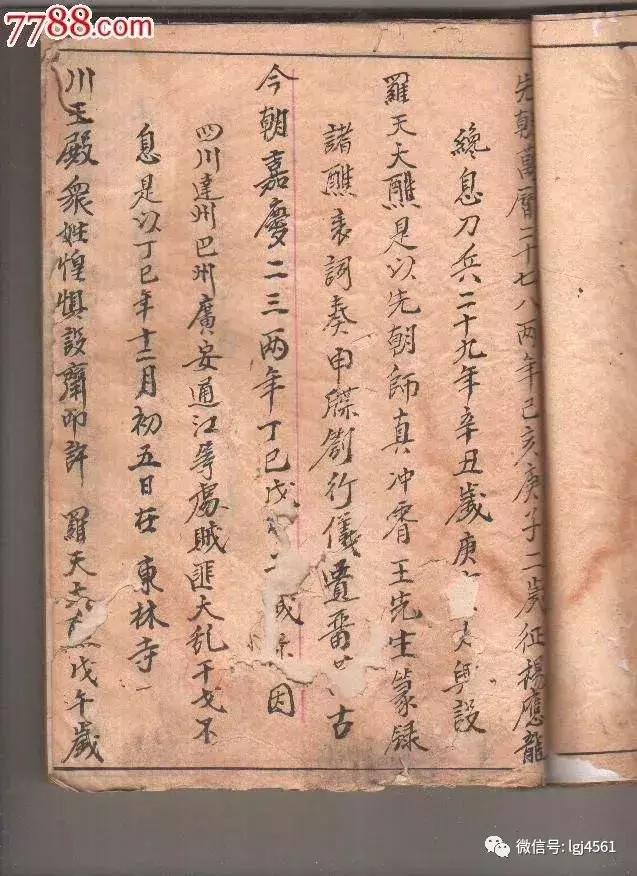 7788.com
先朝萬曆二十七八兩年己亥庚子二歲征楊應龍
纔息刀兵二十九年辛丑歲庚 大興設
羅天大醮是以先朝師真冲霄王先生篆録
諸醮表詞奏申牒劄行儀 古
今朝嘉慶二三兩年丁巳戊 二 因
四川達州巴州廣安通江等處賊匪大乱干戈不
息是以丁巳年十二月初五日在 東林寺
川王殿衆姓惶惧設齋叩許 羅天大 戊午歲
微信号: lgj4561